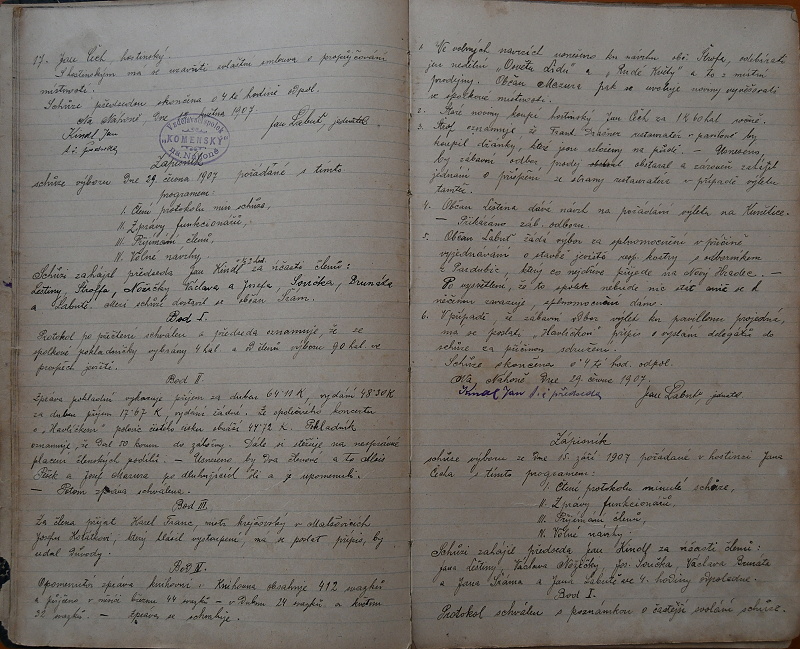 17. Jan Čech, hostinský.
S hostinským má se uzavříti zvláštní smlouva o propůjčování
místnosti.
Schůze předsedou skončena o 4 té hodině odpol.
Na Náhoně, dne května 1907
Kindl Jan Jan Labuť jednatel
t. č. předseda
Vzdělávací spolek
"KOMENSKÝ"
na Náhoně
Zápisník
schůze výboru dne 29 června 1907 pořádané s tímto
programem:
I. Čtení protokolu min. schůze,
II. Zprávy funkcionářů,
III. Přijímání členů,
IV. Volné návrhy.
Schůzi zahájil předseda Jan Kindl za účasti členů:
Leštiny, Štroffa, Nožičky Václava a Josefa, Součka, Brunáta
a Labutě. Ku schůzi dostavil se občan Šrám.
Bod I.
Protokol po přečtení schválen a předseda oznamuje, že ze
spolkové pokladničky vybrány 4 hal. a členů výboru 90 hal. ve
prospěch
Bod II.
Zpráva pokladní vykazuje příjem za duben 64·11 K, vydání 48·30 K
za duben příjem 17·67 K, vydání žádné. Ze společného koncertu
s „Havlíčkem" polovic čistého zisku obnáší 44·72 K. Pokladník
oznamuje, že dal 50 korun do záložny. Dále si stěžuje na nesprávné
placení členských podílů. — Usneseno by dva členové a to Alois
a Josef Mazura po dlužnících šli a je upomenuli.
— Potom zpráva schválena.
Bod III.
Za člena přijat Karel Franc, mistr krejčovský v Malšovicích
Josefu Holátkovi, který hlásil vystoupení, má se poslat přípis, by
udal důvody.
Bod IV.
Opomenutá zpráva knihovní: Knihovna obsahuje 412 svazků
a půjčeno v měsíci březnu 44 svazků — v dubnu 24 svazků a květnu
32 svazků. — Zpráva se schvaluje.
1. Ve volných návrzích usneseno ku návrhu obč. Štrofa, odebírati
jen nedělní „Osvěta Lidu" a „Rudé Květy" a to z místní
prodejny. Občan Mazura pak se uvoluje noviny vyvěšovati
ve spolkové místnosti.
2. Staré noviny koupí hostinský Jan Čech za 1 K 60 hal. ročně.
3. Týž oznamuje, že Frant. restaurateur v pavilonu by
koupil džbánky, které jsou uloženy na půdě. — Usneseno,
by zábavní odbor prodej obstaral a zároveň zahájil
jednání o přispění ze strany restauratéra v případě výletu
tamtéž.
4. Občan Leština dává návrh na pořádání výletu na Kunětice.
— Přikázáno záb. odboru.
5. Občan Labuť žádá výbor za splnomocnění v příčině
vyjednávání o stavbě jeviště resp. kostry s odborníkem
z Pardubic, který co nejdříve přijede na Nový Hradec. —
Po vysvětlení, že to spolek nebude nic stát aniž se k
něčemu zavazuje, splnomocnění dáno.
6. V případě, že zábavní odbor výlet ku pavillonu projedná,
má se poslati „Havlíčkovi" přípis o vyslání delegátů do
schůze za příčinou sdružení.
Schůze skončena o 4 té hod. odpol.
Na Náhoně, dne 29. června 1907.
Kindl Jan t. č. předseda Jan Labuť jednatel
Zápisník
schůze výboru ze dne 15. září 1907 pořádané v hostinci Jana
Čecha s tímto programem:
I. Čtení protokolu minulé schůze,
II. Zprávy funkcionářů,
III. Přijímání členů,
IV. Volné návrhy.
Schůzi zahájil předseda Jan Kindl za účasti členů:
Jana Leštiny, Václava Nožičky, Jos. Součka, Václava Brunáta
a Jana Šráma a Jana Labutě ve 4. hodiny odpoledne.
Bod I.
Protokol schválen s poznámkou o častější svolání schůze.